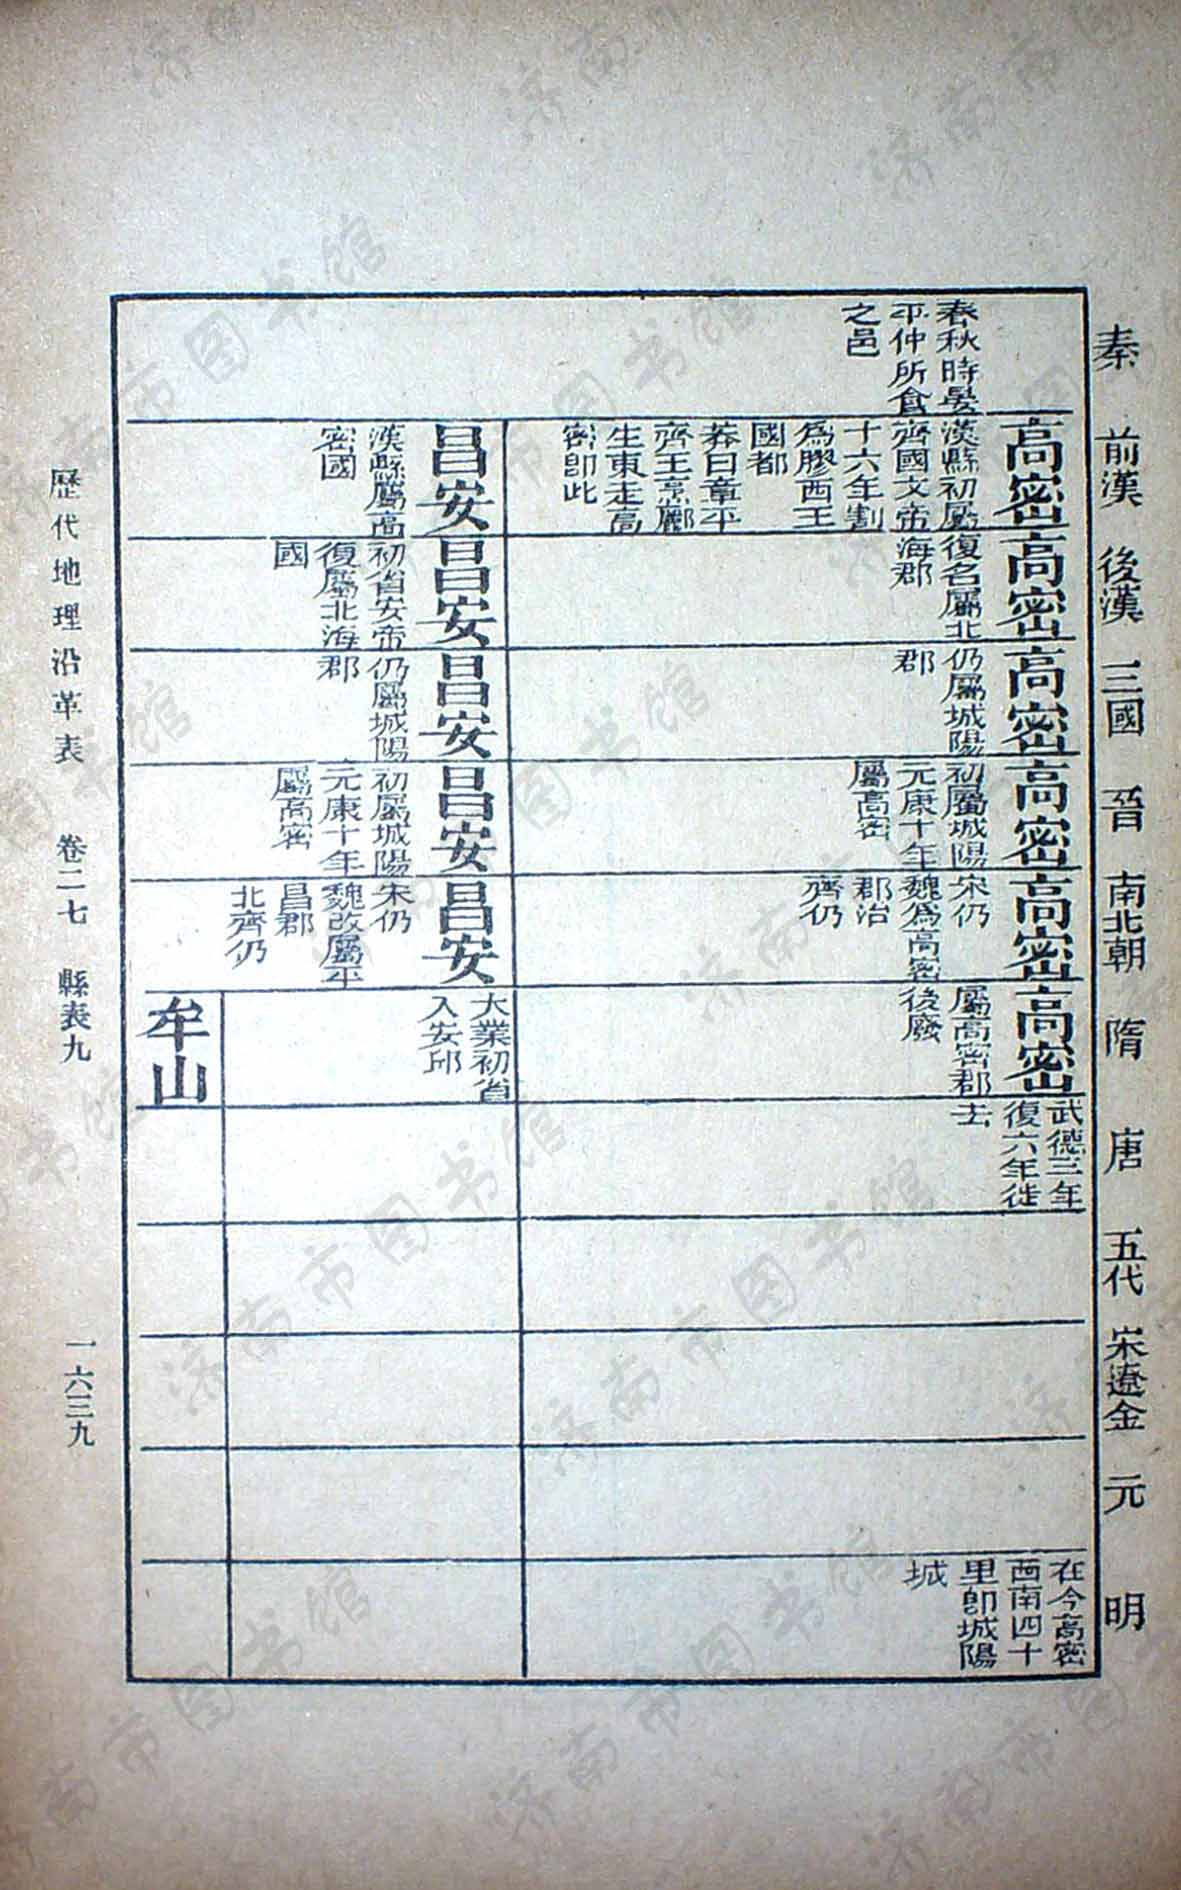 秦
前漢
後漢
三國
晉
南北朝
隋
唐
五代
宋遼金
元
明
春秋時晏
平仲所食
之邑
高密
漢縣初屬
齊國文帝
十六年割
為膠西王
國都
莽曰章平
齊王烹酈
生東走高
密即此
高密
復名屬北
海郡
高密
仍屬城陽
郡
高密
初屬城陽
元康十年
屬高密
高密
宋仍
魏為高密
郡治
齊仍
高密
屬高密郡
後廢
武德三年
復六年徙
去
在今高密
西南四十
里即城陽
城
昌安
漢縣屬高
密國
昌安
初省安帝
復屬北海
國
昌安
仍屬城陽
郡
昌安
初屬城陽
元康十年
屬高密
昌安
宋仍
魏改屬平
昌郡
北齊仍
大業初省
入安邱
牟山
歷代地理沿革表 卷二七 縣表九 一六三九
济南市图书馆